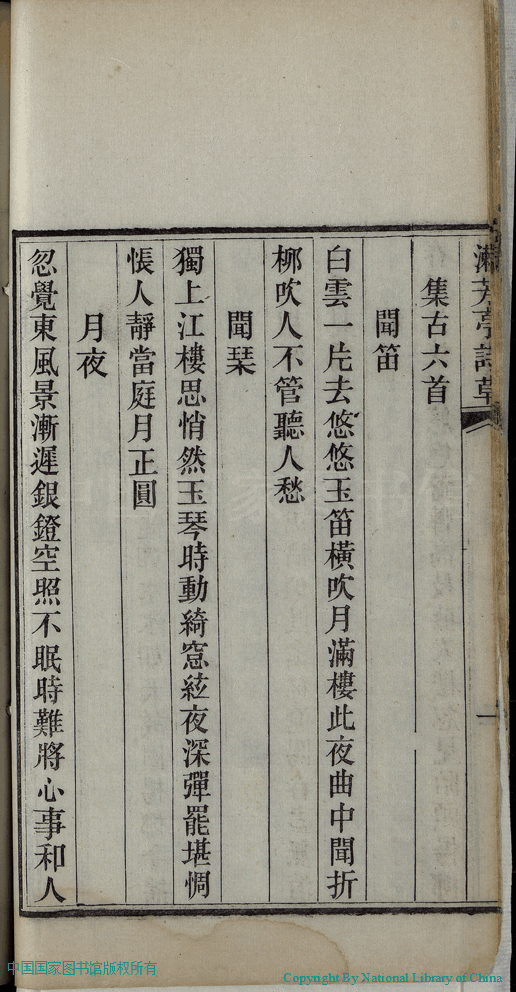 漱芳亭詩草
一
集古六首
聞笛
白雲一片去悠悠玉笛橫吹月滿樓此夜曲中聞折
柳吹人不管聽人愁
聞琹
獨上江樓思悄然玉琴時動綺窓絃夜深彈罷堪惆
悵人靜當庭月正圓
月夜
忽覺東風景漸遲銀鐙空照不眠時難將心事和人
中国国家图书馆版权所有
Copyright By National Library of China